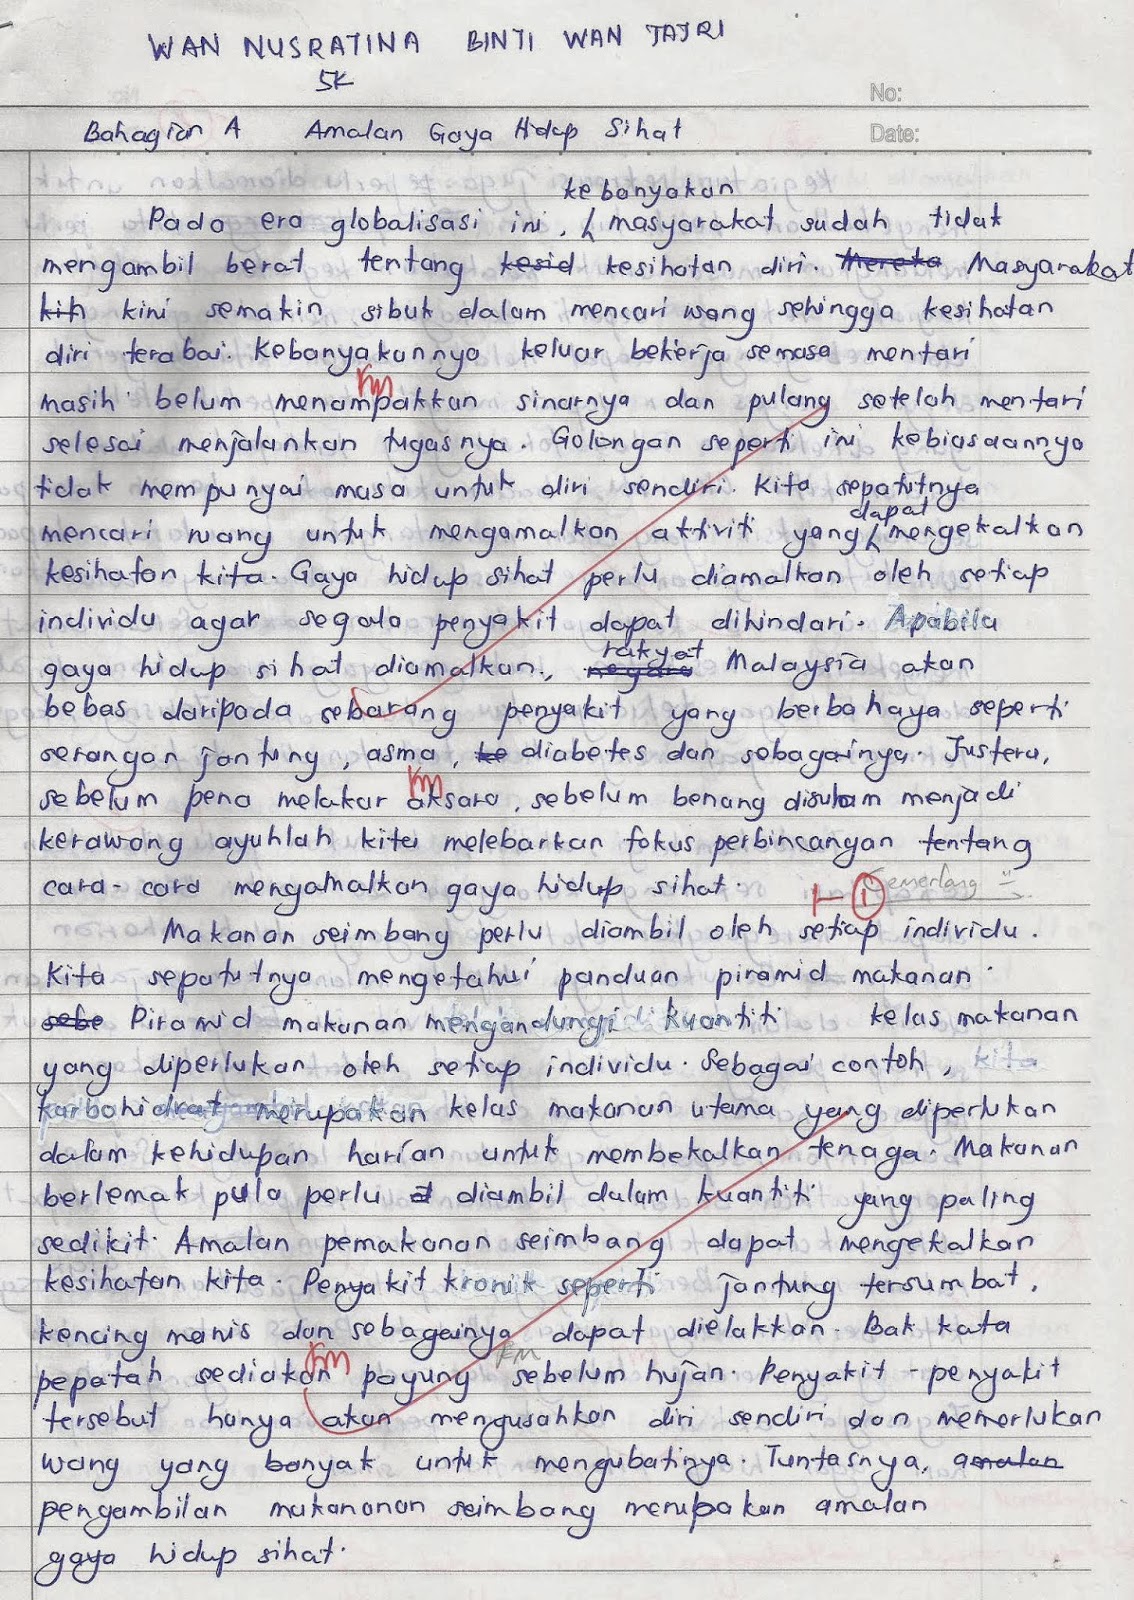 WAN NUSRATINA BINTI WAN TAJRI
5K
No:
Bahagian A Amalan Gaya Hidup Sihat
Date:
kebanyakan
Pada era globalisasi ini, masyarakat sudah tidak
mengambil berat tentang kesid kesihatan diri. Mereka Masyarakat
kih kini semakin sibuk dalam mencari wang sehingga kesihatan
diri terabai. Kebanyakannya keluar bekerja semasa mentari
KM
masih belum menampakkan sinarnya dan pulang setelah mentari
selesai menjalankan tugasnya. Golongan seperti ini kebiasaannya
tidak mempunyai masa untuk diri sendiri. Kita sepatutnya
dapat
mencari ruang untuk mengamalkan aktiviti yang mengekalkan
kesihatan kita. Gaya hidup sihat perlu diamalkan oleh setiap
individu agar segala penyakit dapat dihindari. Apabila
rakyat
gaya hidup sihat diamalkan, negara Malaysia akan
bebas daripada sebarang penyakit yang berbahaya seperti
serangan jantung, asma, ke diabetes dan sebagainya. Justeru,
KM
sebelum pena melakar aksara, sebelum benang disulam menjadi
kerawang ayuhlah kita melebarkan fokus perbincangan tentang
cara-cara mengamalkan gaya hidup sihat.
1 cemerlang
Makanan seimbang perlu diambil oleh setiap individu.
Kita sepatutnya mengetahui panduan piramid makanan.
sebe Piramid makanan mengandungi kuantiti kelas makanan
yang diperlukan oleh setiap individu. Sebagai contoh, kita
karbohidrat merupakan kelas makanan utama yang diperlukan
dalam kehidupan harian untuk membekalkan tenaga. Makanan
berlemak pula perlu d diambil dalam kuantiti yang paling
sedikit. Amalan pemakanan seimbang dapat mengekalkan
kesihatan kita. Penyakit kronik seperti jantung tersumbat,
kencing manis dan sebagainya dapat dielakkan. Bak kata
KM KM
pepatah sediakan payung sebelum hujan. Penyakit-penyakit
tersebut hanya akan mengusahkan diri sendiri dan memerlukan
wang yang banyak untuk mengubatinya. Tuntasnya, amalan
pengambilan makananan seimbang merupakan amalan
gaya hidup sihat.